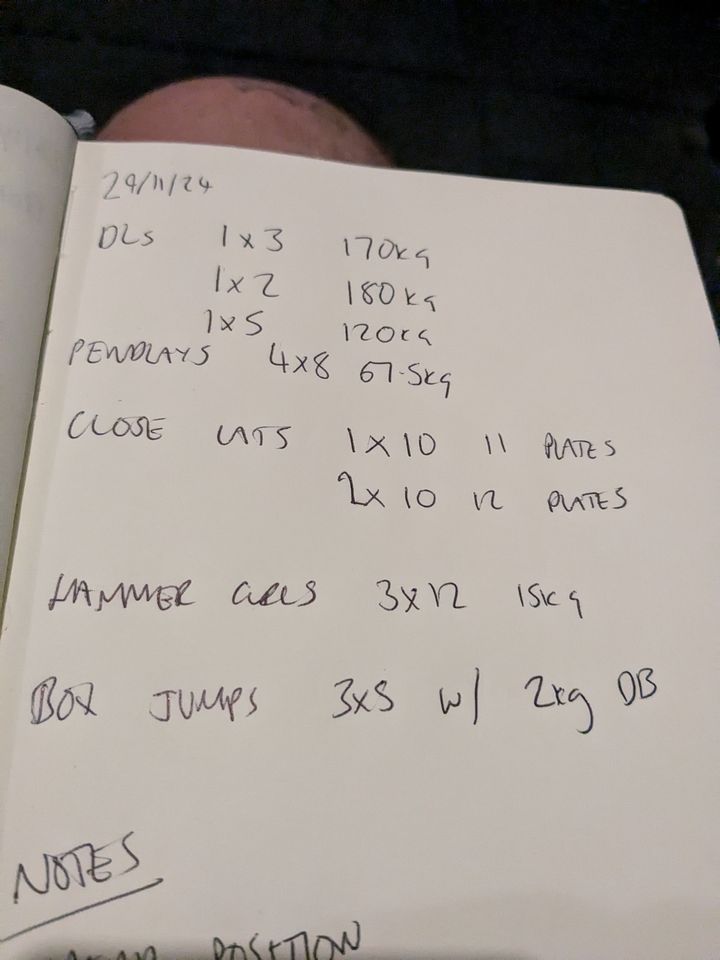 29/11/24
DLs 1x3 170kg
1x2 180kg
1x5 120kg
PENDLAYS 4x8 67.5kg
CLOSE LATS 1x10 11 PLATES
2x10 12 PLATES
HAMMER CURLS 3x12 15kg
BOX JUMPS 3x5 w/ 2kg DB
NOTES
POSITION